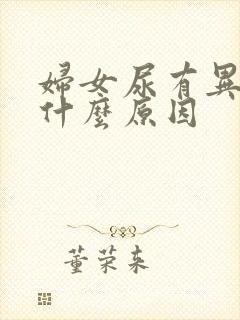 婦女尿有異
什麼原因
董荣来